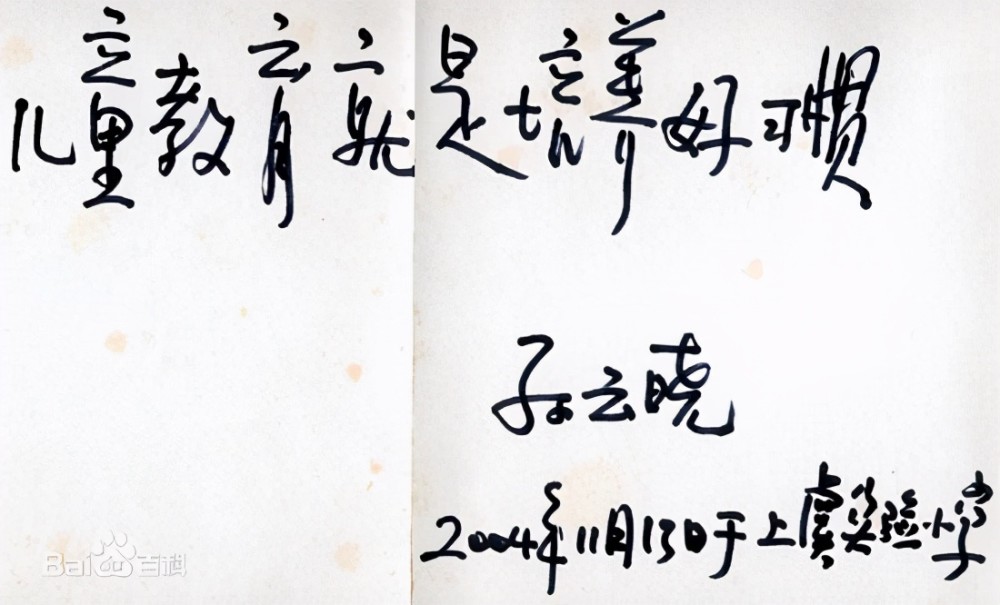 儿童教育就是培养好习惯
孙云晓
2004年11月13日于上虞实验小学
Bai百科